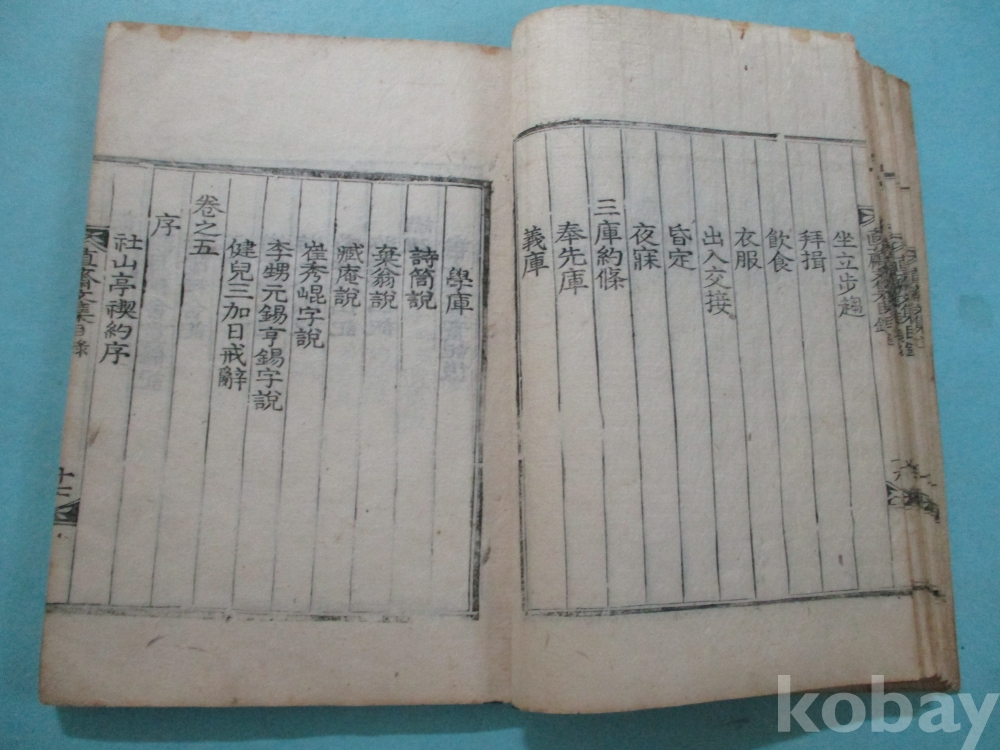 坐立步趨
拜揖
飮食
衣服
出入交接
昏定
夜寐
三庫約條
奉先庫
義庫
學庫
詩筒說
棄翁說
臧庵說
崔秀崐字說
李甥元錫亨錫字說
健兒三加日戒辭
卷之五
序
社山亭禊約序
直齋文集目錄
kobay